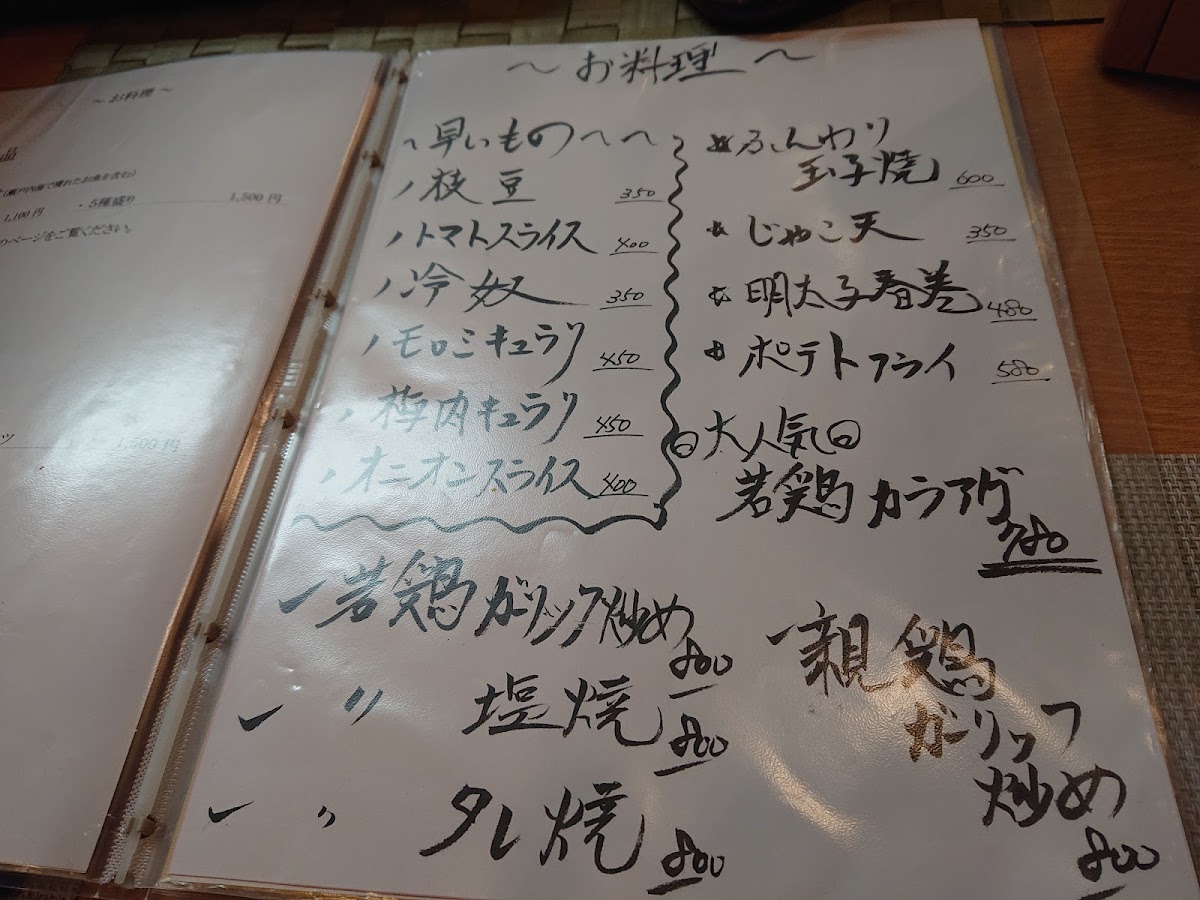 ～お料理～
品
(瀬戸内海で獲れたお魚を含む)
1,100円 ・5種盛り 1,500円
のページをご覧ください。
ツ 1,500円
～お料理～
～早いもの～～
枝豆 350
トマトスライス 400
冷奴 350
モロミキュウリ 450
梅肉キュウリ 450
オニオンスライス 400
ふんわり
玉子焼 600
じゃこ天 350
明太子春巻 480
ポテトフライ 580
大人気
若鶏カラアゲ
780
若鶏ガーリック炒め
800
〃 塩焼 800
〃 タレ焼 800
親鶏
ガーリック
炒め
800